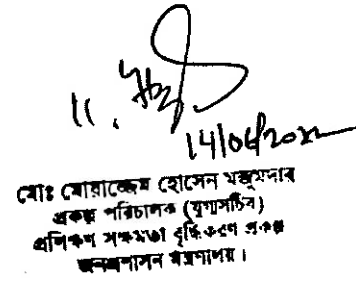 14/06/20
মোঃ মোয়াজ্জেম হোসেন মজুমদার
প্রকল্প পরিচালক (যুগ্মসচিব)
প্রশিক্ষণ সক্ষমতা বৃদ্ধিকরণ প্রকল্প
জনপ্রশাসন মন্ত্রণালয়।